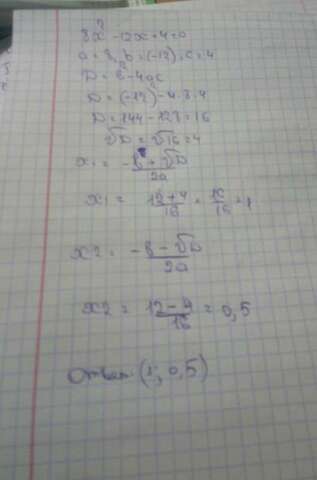 8x² - 12x + 4 = 0
a = 8, b = (-12), c = 4
D = b² - 4ac
D = (-12)² - 4·8·4
D = 144 - 128 = 16
√D = √16 = 4
x1 = -b + √D / 2a
x1 = 12 + 4 / 16 = 16 / 16 = 1
x2 = -b - √D / 2a
x2 = 12 - 4 / 16 = 0,5
Ответ: (1; 0,5)